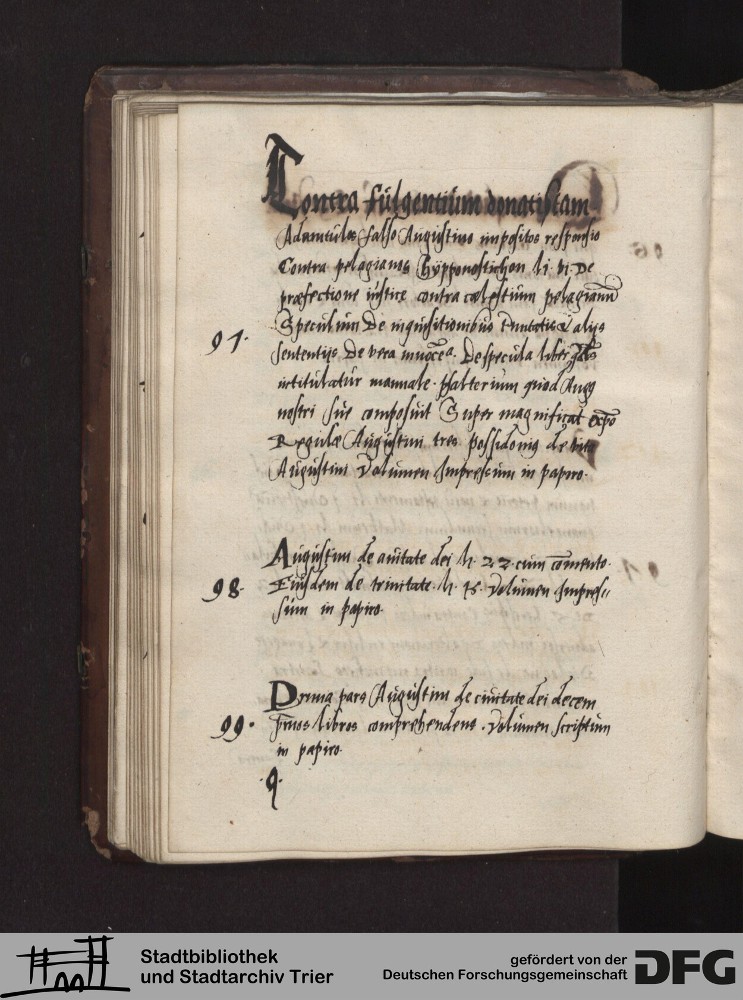 Contra fulgentium donatistam
Adamtulæ falso Augustino impositæ responsio
Contra pelagianos Hypponostichon li. vi. De
præfectione iustice contra cælestium pelagianū
Speculum De inquisitionibus & alijs
97.
sententijs De vera De specula liber
intitulatur manuale. psalterium quod Aug
nostri suæ composuit Super magnificat expo
Regulæ Augustini tres possidonius de vita
Augustini Volumen Impressum in papiro.
Augustinus de ciuitate dei li. 22. cum cōmento.
98.
Eiusdem de trinitate. li. 15. Volumen Impres-
sum in papiro
Prima pars Augustini de ciuitate dei decem
99.
prīos libros comprehendens. Volumen scriptum
in papiro.
q.
Stadtbibliothek
und Stadtarchiv Trier
gefördert von der
Deutschen Forschungsgemeinschaft
DFG